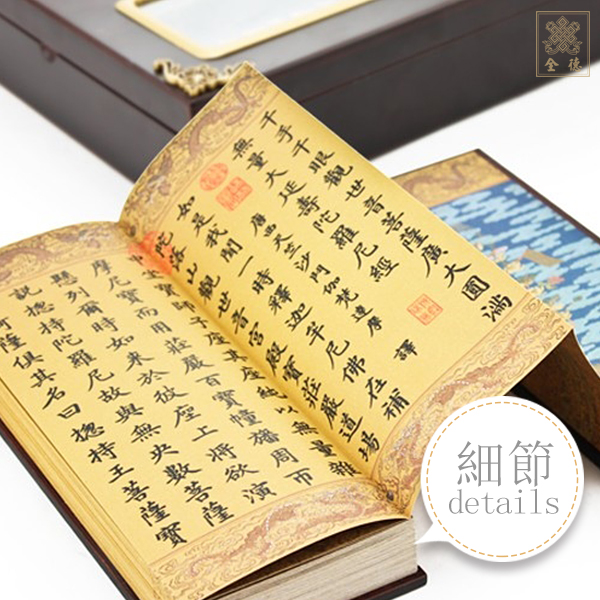 全德
千手千眼觀世音菩薩廣大圓滿
無量大延壽陀羅尼經
唐西天竺沙門伽梵達摩 譯
如是我聞一時釋迦牟尼佛在補
陀落山觀世音宮殿寶莊嚴道場
以無量雜
摩尼寶而用莊嚴百寶幢旛周帀
懸列爾時如來於彼座上將欲演
說揔持陀羅尼故與無央數菩薩
薩俱其名曰揔持王菩薩寶
細節
details